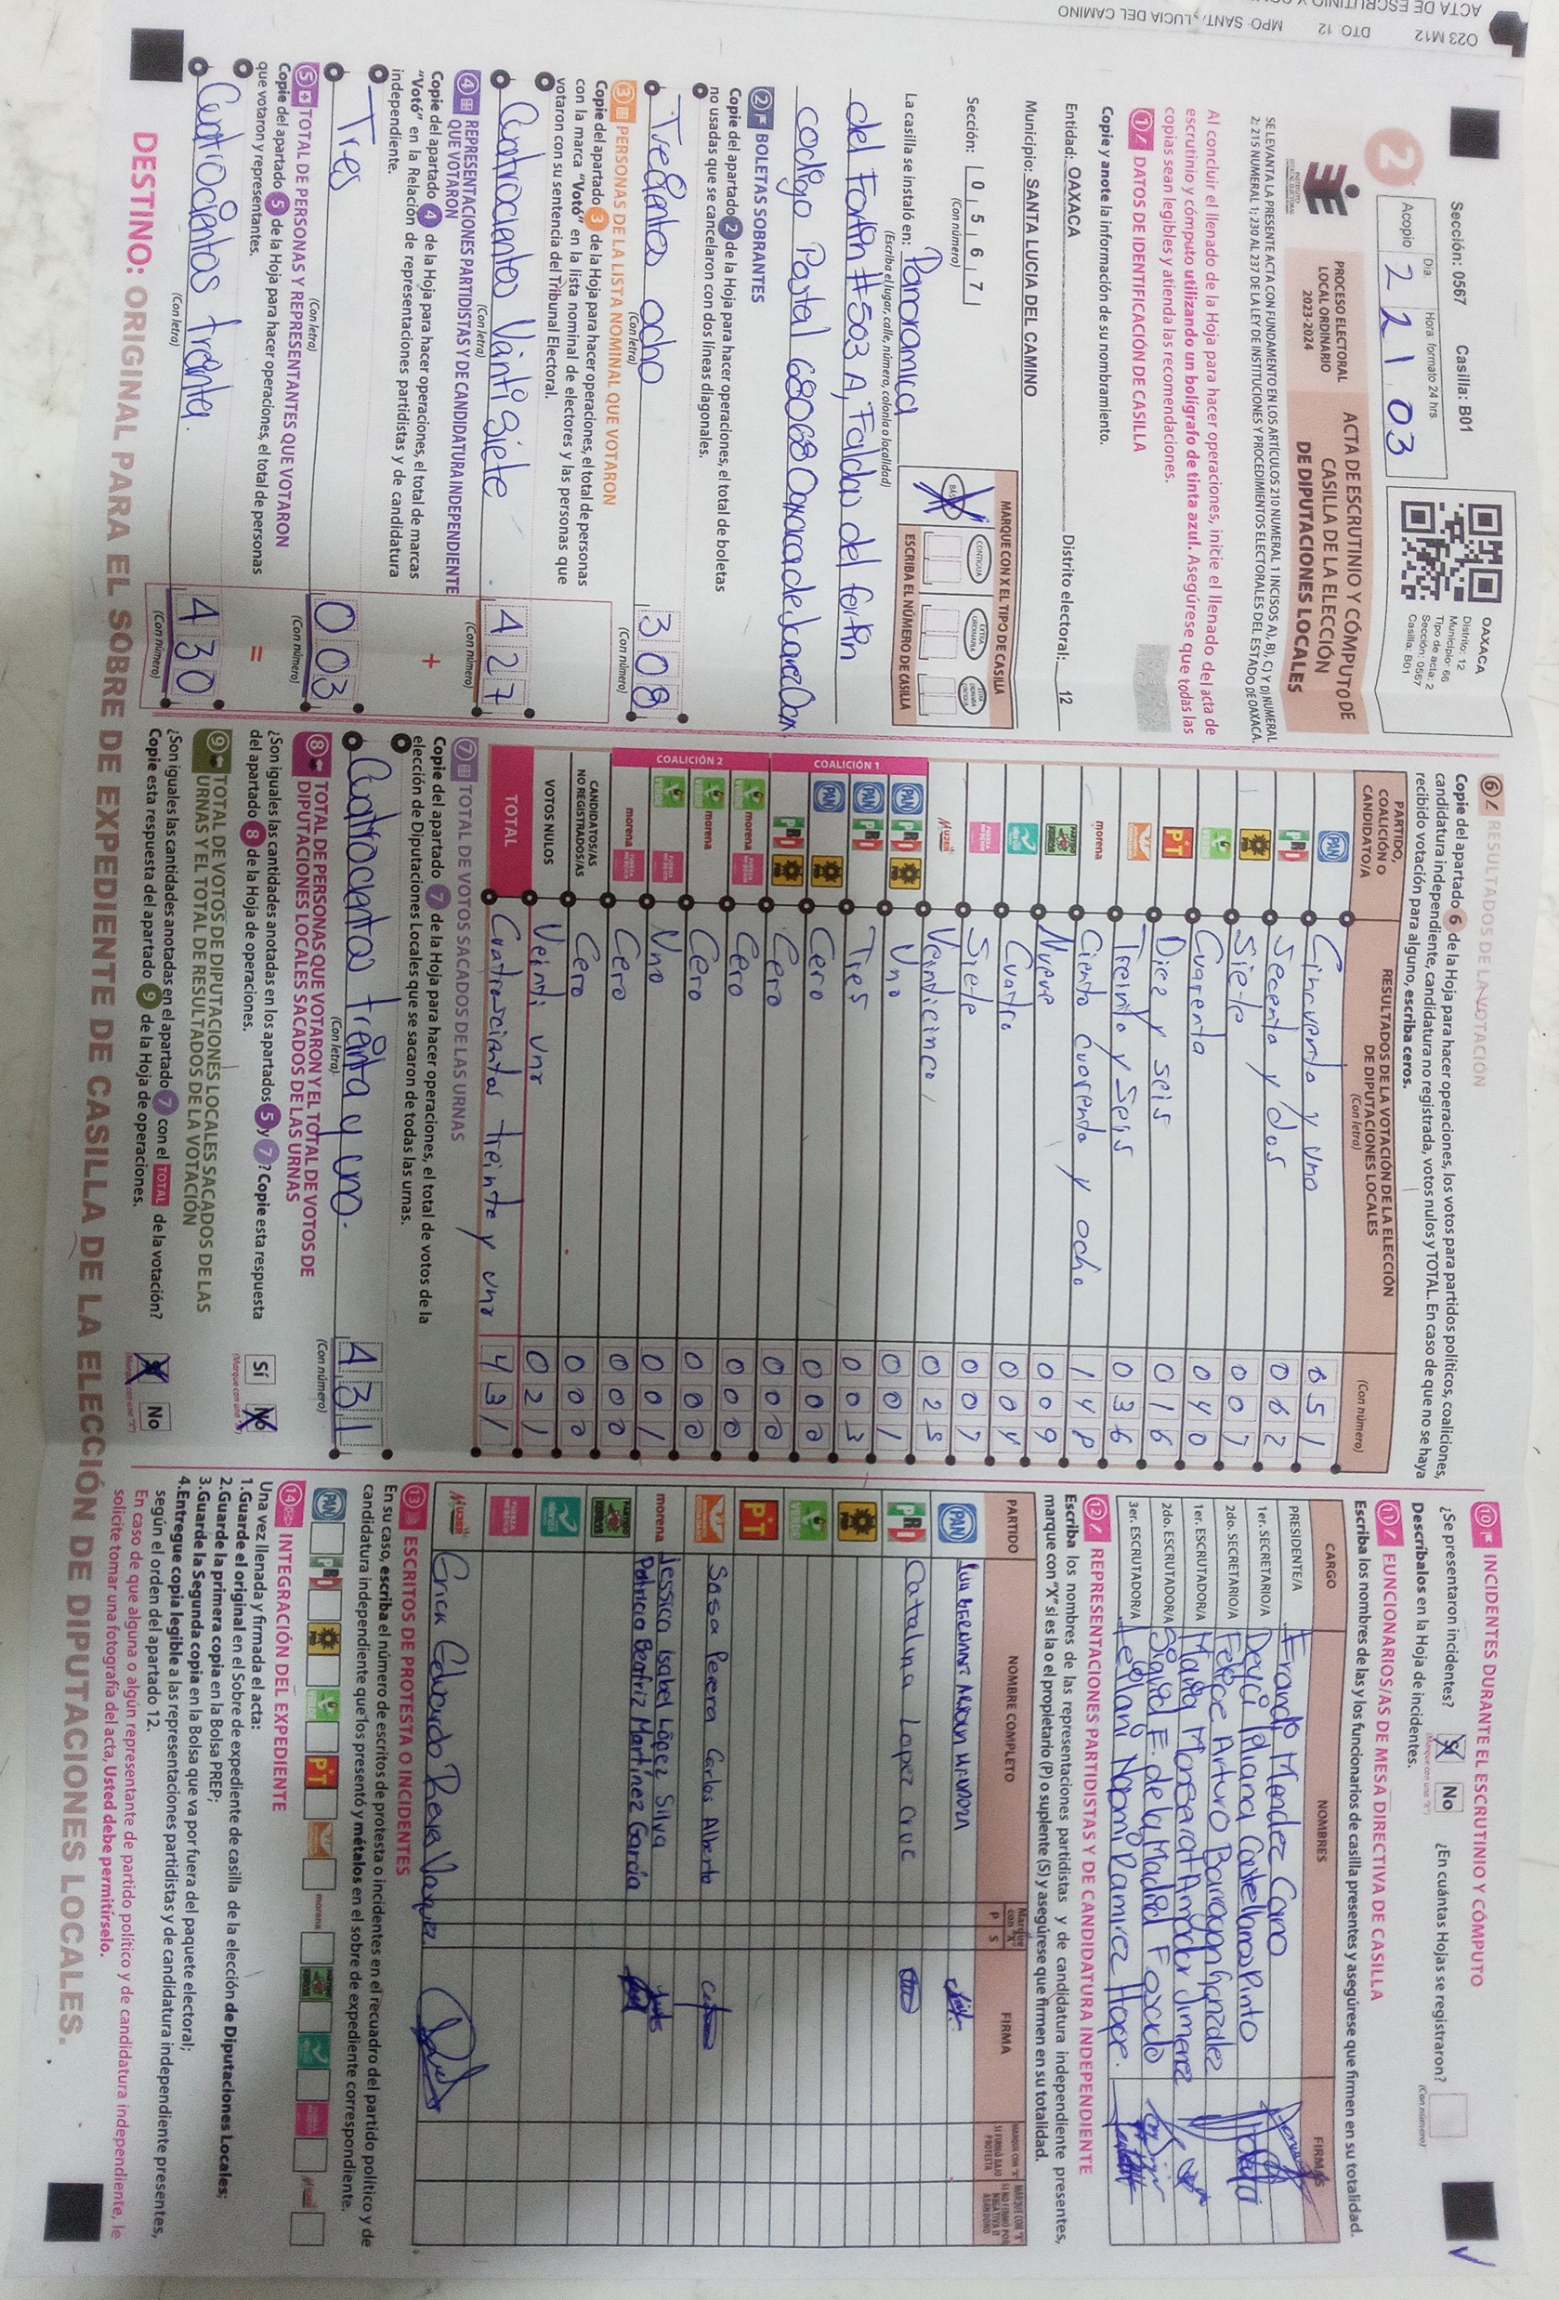 O23 M12 DTO 12 MPO SANTA LUCIA DEL CAMINO
Sección: 0567 Casilla: B01
2
Acopio
Día Hora: formato 24 hrs
2 21 03
OAXACA
Distrito: 12
Municipio: 66
Tipo de acta: 2
Sección: 0567
Casilla: B01
PROCESO ELECTORAL
LOCAL ORDINARIO
2023-2024
ACTA DE ESCRUTINIO Y CÓMPUTO DE
CASILLA DE LA ELECCIÓN
DE DIPUTACIONES LOCALES
SE LEVANTA LA PRESENTE ACTA CON FUNDAMENTO EN LOS ARTÍCULOS 210 NUMERAL 1 INCISOS A), B), C) Y D) NUMERAL
2; 215 NUMERAL 1; 230 AL 237 DE LA LEY DE INSTITUCIONES Y PROCEDIMIENTOS ELECTORALES DEL ESTADO DE OAXACA.
Al concluir el llenado de la Hoja para hacer operaciones, inicie el llenado del acta de
escrutinio y cómputo utilizando un bolígrafo de tinta azul. Asegúrese que todas las
copias sean legibles y atienda las recomendaciones.
1 DATOS DE IDENTIFICACIÓN DE CASILLA
Copie y anote la información de su nombramiento.
Entidad: OAXACA Distrito electoral: 12
Municipio: SANTA LUCIA DEL CAMINO
Sección: 0 5 6 7
(Con número)
MARQUE CON X EL TIPO DE CASILLA
BÁSICA CONTIGUA EXTRAORDINARIA EXTRAORDINARIA CONTIGUA
ESCRIBA EL NÚMERO DE CASILLA
La casilla se instaló en: Panoramica
(Escriba el lugar, calle, número, colonia o localidad)
del Fortin #503 A, Faldas del fortin
codigo Postal 68068 Oaxaca de Juarez Oax
2 BOLETAS SOBRANTES
Copie del apartado 2 de la Hoja para hacer operaciones, el total de boletas
no usadas que se cancelaron con dos líneas diagonales.
Trecientos ocho 308
(Con letra) (Con número)
3 PERSONAS DE LA LISTA NOMINAL QUE VOTARON
Copie del apartado 3 de la Hoja para hacer operaciones, el total de personas
con la marca "Votó" en la lista nominal de electores y las personas que
votaron con su sentencia del Tribunal Electoral.
Cuatrocientos Veinti Siete 427
(Con letra) (Con número)
4 REPRESENTACIONES PARTIDISTAS Y DE CANDIDATURA INDEPENDIENTE
QUE VOTARON
Copie del apartado 4 de la Hoja para hacer operaciones, el total de marcas
"Votó" en la Relación de representaciones partidistas y de candidatura
independiente.
+
Tres 003
(Con letra) (Con número)
5 TOTAL DE PERSONAS Y REPRESENTANTES QUE VOTARON
Copie del apartado 5 de la Hoja para hacer operaciones, el total de personas
que votaron y representantes.
=
Cuatrocientos treinta. 430
(Con letra) (Con número)
6 RESULTADOS DE LA VOTACIÓN
Copie del apartado 6 de la Hoja para hacer operaciones, los votos para partidos políticos, coaliciones,
candidatura independiente, candidatura no registrada, votos nulos y TOTAL. En caso de que no se haya
recibido votación para alguno, escriba ceros.
PARTIDO, COALICIÓN O CANDIDATO/A
RESULTADOS DE LA VOTACIÓN DE LA ELECCIÓN DE DIPUTACIONES LOCALES
(Con letra) (Con número)
PAN Cincuenta y uno 051
PRI Secenta y dos 062
PRD Siete 007
VERDE Cuarenta 040
PT Diez y seis 016
Treinta y Seis 036
morena Ciento cuarenta y ocho 148
Nueve 009
Cuatro 004
Siete 007
Mujer Veinticinco 025
COALICIÓN 1
PAN PRI PRD Uno 001
PAN PRI Tres 003
PAN PRD Cero 000
PRI PRD Cero 000
COALICIÓN 2
VERDE morena FUERZA Cero 000
VERDE morena Cero 000
VERDE FUERZA Uno 001
morena FUERZA Cero 000
CANDIDATOS/AS NO REGISTRADOS/AS Cero 000
VOTOS NULOS Veinti uno 021
TOTAL Cuatrocientos treinta y uno 431
7 TOTAL DE VOTOS SACADOS DE LAS URNAS
Copie del apartado 7 de la Hoja para hacer operaciones, el total de votos de la
elección de Diputaciones Locales que se sacaron de todas las urnas.
Cuatrocientos treinta y uno. 431
(Con letra) (Con número)
8 TOTAL DE PERSONAS QUE VOTARON Y EL TOTAL DE VOTOS DE
DIPUTACIONES LOCALES SACADOS DE LAS URNAS
¿Son iguales las cantidades anotadas en los apartados 5 y 7? Copie esta respuesta
del apartado 8 de la Hoja de operaciones.
Sí No
(Marque con una "X")
9 TOTAL DE VOTOS DE DIPUTACIONES LOCALES SACADOS DE LAS
URNAS Y EL TOTAL DE RESULTADOS DE LA VOTACIÓN
¿Son iguales las cantidades anotadas en el apartado 7 con el TOTAL de la votación?
Copie esta respuesta del apartado 9 de la Hoja de operaciones.
Sí No
10 INCIDENTES DURANTE EL ESCRUTINIO Y CÓMPUTO
¿Se presentaron incidentes? Sí No ¿En cuántas Hojas se registraron?
(Marque con una "X") (Con número)
Descríbalos en la Hoja de incidentes.
11 FUNCIONARIOS/AS DE MESA DIRECTIVA DE CASILLA
Escriba los nombres de las y los funcionarios de casilla presentes y asegúrese que firmen en su totalidad.
CARGO NOMBRES FIRMAS
PRESIDENTE/A Erando Mendez Cano
1er. SECRETARIO/A Deyci Iduiana Castellanos Pinto
2do. SECRETARIO/A Felipe Arturo Barragan Gonzalez
1er. ESCRUTADOR/A Maria Monserat Amador Jimenez
2do. ESCRUTADOR/A Sigrid E. de la Madrid Foxado
3er. ESCRUTADOR/A Leilani Naomi Ramirez Hope.
12 REPRESENTACIONES PARTIDISTAS Y DE CANDIDATURA INDEPENDIENTE
Escriba los nombres de las representaciones partidistas y de candidatura independiente presentes,
marque con "X" si es la o el propietario (P) o suplente (S) y asegúrese que firmen en su totalidad.
PARTIDO NOMBRE COMPLETO Marque con "X" P S FIRMA
PAN
PRI Catalina Lopez Cruc
PRD
VERDE
PT
Sosa Perera Carlos Alberto
morena Jessica Isabel López Silva
Patricia Beatriz Martínez García
Mujer Erick Eduardo Vazquez
13 ESCRITOS DE PROTESTA O INCIDENTES
En su caso, escriba el número de escritos de protesta o incidentes en el recuadro del partido político y de
candidatura independiente que los presentó y métalos en el sobre de expediente correspondiente.
PAN PRI PRD VERDE PT morena
14 INTEGRACIÓN DEL EXPEDIENTE
Una vez llenada y firmada el acta:
1.Guarde el original en el Sobre de expediente de casilla de la elección de Diputaciones Locales;
2.Guarde la primera copia en la Bolsa PREP;
3.Guarde la Segunda copia en la Bolsa que va por fuera del paquete electoral;
4.Entregue copia legible a las representaciones partidistas y de candidatura independiente presentes,
según el orden del apartado 12.
En caso de que alguna o algún representante de partido político y de candidatura independiente, le
solicite tomar una fotografía del acta, Usted debe permitírselo.
DESTINO: ORIGINAL PARA EL SOBRE DE EXPEDIENTE DE CASILLA DE LA ELECCIÓN DE DIPUTACIONES LOCALES.